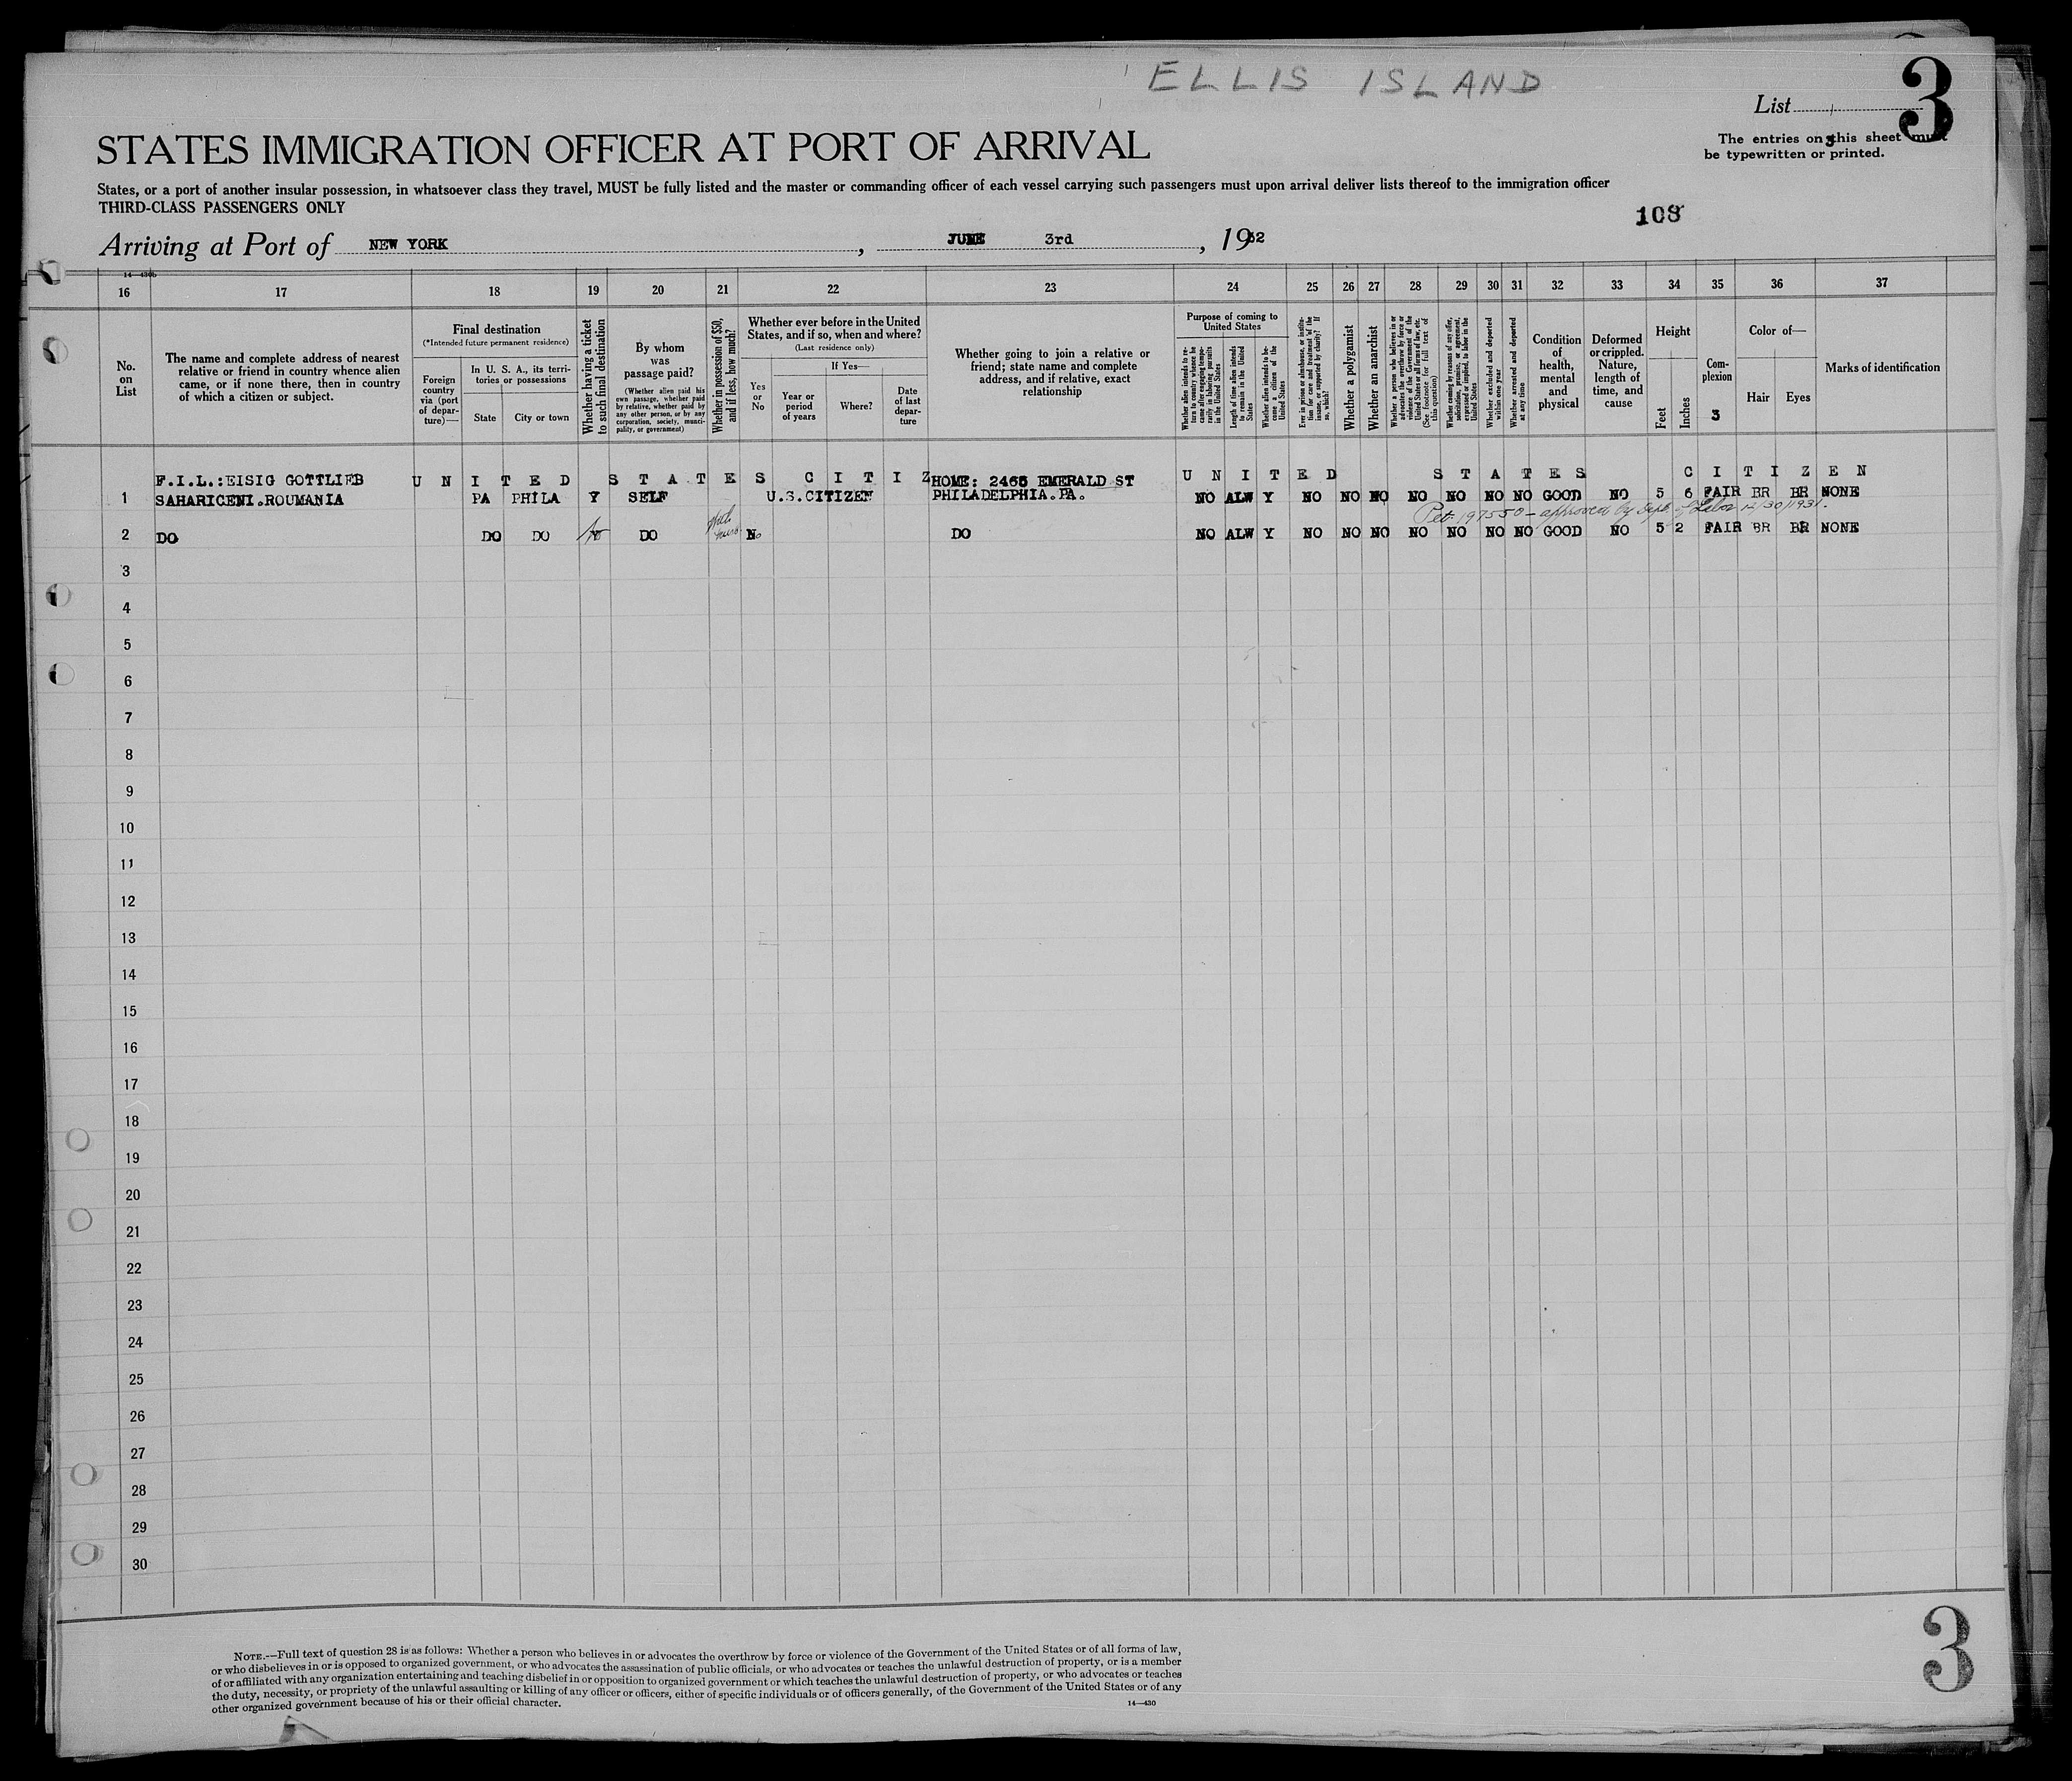 ELLIS ISLAND
3
List
STATES IMMIGRATION OFFICER AT PORT OF ARRIVAL
The entries on this sheet must
be typewritten or printed.
3
States, or a port of another insular possession, in whatsoever class they travel, MUST be fully listed and the master or commanding officer of each vessel carrying such passengers must upon arrival deliver lists thereof to the immigration officer
THIRD-CLASS PASSENGERS ONLY
108
Arriving at Port of NEW YORK, JUNE 3rd, 1932
14—430b
16 17 18 19 20 21 22 23 24 25 26 27 28 29 30 31 32 33 34 35 36 37
No.
on
List
The name and complete address of nearest
relative or friend in country whence alien
came, or if none there, then in country
of which a citizen or subject.
Final destination
(*Intended future permanent residence)
Foreign
country
via (port
of depar-
ture)—
In U. S. A., its terri-
tories or possessions
State
City or town
Whether having a ticket
to such final destination
By whom
was
passage paid?
(Whether alien paid his
own passage, whether paid
by relative, whether paid by
any other person, or by any
corporation, society, munici-
pality, or government)
Whether in possession of $50,
and if less, how much?
Whether ever before in the United
States, and if so, when and where?
(Last residence only)
Yes
or
No
If Yes—
Year or
period
of years
Where?
Date
of last
depar-
ture
Whether going to join a relative or
friend; state name and complete
address, and if relative, exact
relationship
Purpose of coming to
United States
Whether alien intends to re-
turn to country whence he
came after engaging tempo-
rarily in laboring pursuits
in the United States
Length of time alien intends
to remain in the United
States
Whether alien intends to be-
come a citizen of the
United States
Ever in prison or almshouse, or institu-
tion for care and treatment of the
insane, or supported by charity? If
so, which?
Whether a polygamist
Whether an anarchist
Whether a person who believes in or
advocates the overthrow by force or
violence of the Government of the
United States or all forms of law, etc.
(See footnote for full text of
this question)
Whether coming by reasons of any offer,
solicitation, promise, or agreement,
expressed or implied, to labor in the
United States
Whether excluded and deported
within one year
Whether arrested and deported
at any time
Condition
of
health,
mental
and
physical
Deformed
or crippled.
Nature,
length of
time, and
cause
Height
Feet
Inches
Com-
plexion
3
Color of—
Hair
Eyes
Marks of identification
F.I.L.:EISIG GOTTLIEB U N I T E D S T A T E S C I T I Z HOME: 2465 EMERALD ST U N I T E D S T A T E S C I T I Z E N
1 SAHARICENI.ROUMANIA PA PHILA Y SELF U.S.CITIZEN PHILADELPHIA.PA. NO ALW Y NO NO NO NO NO NO NO GOOD NO 5 6 FAIR BR BR NONE
Pet. 197550 - approved by Sept. of Labor 12/30/1931.
2 DO DO DO DO No DO NO ALW Y NO NO NO NO NO NO NO GOOD NO 5 2 FAIR BR BR NONE
3
4
5
6
7
8
9
10
11
12
13
14
15
16
17
18
19
20
21
22
23
24
25
26
27
28
29
30
NOTE.—Full text of question 28 is as follows: Whether a person who believes in or advocates the overthrow by force or violence of the Government of the United States or of all forms of law,
or who disbelieves in or is opposed to organized government, or who advocates the assassination of public officials, or who advocates or teaches the unlawful destruction of property, or is a member
of or affiliated with any organization entertaining and teaching disbelief in or opposition to organized government or which teaches the unlawful destruction of property, or who advocates or teaches
the duty, necessity, or propriety of the unlawful assaulting or killing of any officer or officers, either of specific individuals or of officers generally, of the Government of the United States or of any
other organized government because of his or their official character.
14—430
3